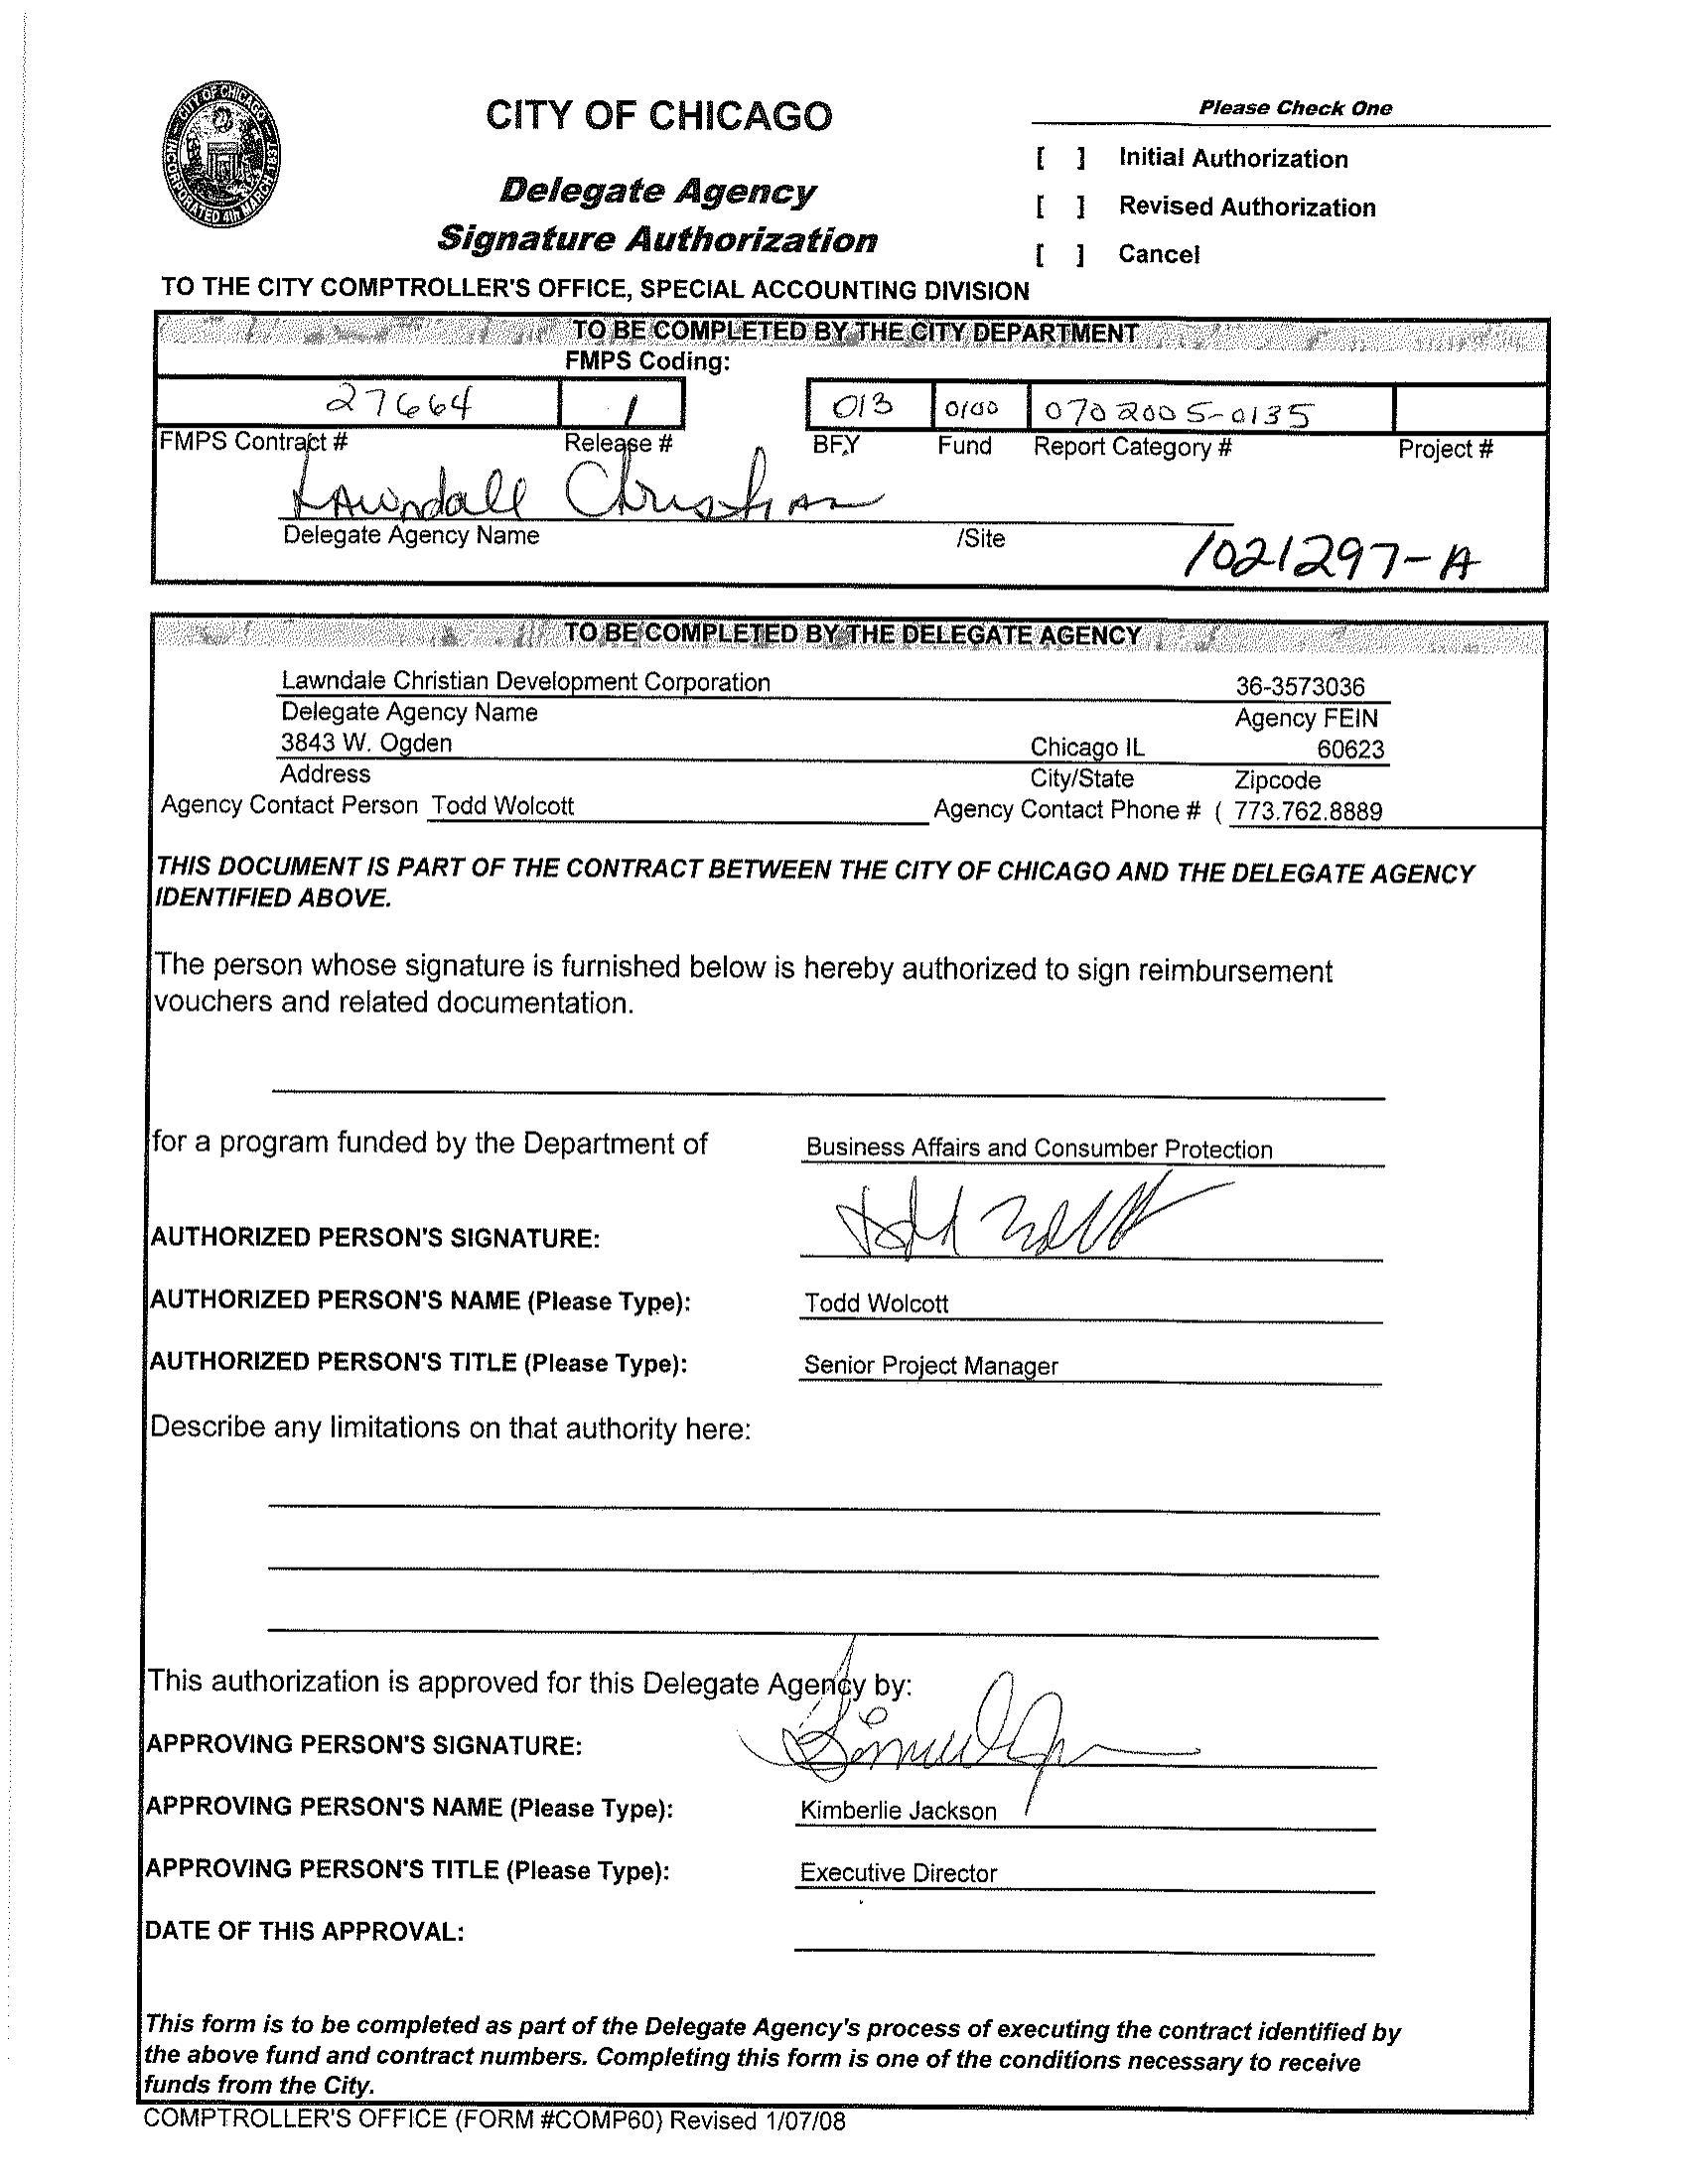 CITY OF CHICAGO INCORPORATED 4th MARCH 1837
CITY OF CHICAGO
Delegate Agency
Signature Authorization
Please Check One
[ ] Initial Authorization
[ ] Revised Authorization
[ ] Cancel
TO THE CITY COMPTROLLER'S OFFICE, SPECIAL ACCOUNTING DIVISION
TO BE COMPLETED BY THE CITY DEPARTMENT
FMPS Coding:
27664 1 013 0100 0702005-0135
FMPS Contract # Release # BFY Fund Report Category # Project #
Lawndall Christian
Delegate Agency Name /Site
1021297-A
TO BE COMPLETED BY THE DELEGATE AGENCY
Lawndale Christian Development Corporation 36-3573036
Delegate Agency Name Agency FEIN
3843 W. Ogden Chicago IL 60623
Address City/State Zipcode
Agency Contact Person Todd Wolcott Agency Contact Phone # ( 773.762.8889
THIS DOCUMENT IS PART OF THE CONTRACT BETWEEN THE CITY OF CHICAGO AND THE DELEGATE AGENCY
IDENTIFIED ABOVE.
The person whose signature is furnished below is hereby authorized to sign reimbursement
vouchers and related documentation.
for a program funded by the Department of Business Affairs and Consumber Protection
AUTHORIZED PERSON'S SIGNATURE: Todd Wolcott
AUTHORIZED PERSON'S NAME (Please Type): Todd Wolcott
AUTHORIZED PERSON'S TITLE (Please Type): Senior Project Manager
Describe any limitations on that authority here:
This authorization is approved for this Delegate Agency by:
APPROVING PERSON'S SIGNATURE:
APPROVING PERSON'S NAME (Please Type): Kimberlie Jackson
APPROVING PERSON'S TITLE (Please Type): Executive Director
DATE OF THIS APPROVAL:
This form is to be completed as part of the Delegate Agency's process of executing the contract identified by
the above fund and contract numbers. Completing this form is one of the conditions necessary to receive
funds from the City.
COMPTROLLER'S OFFICE (FORM #COMP60) Revised 1/07/08